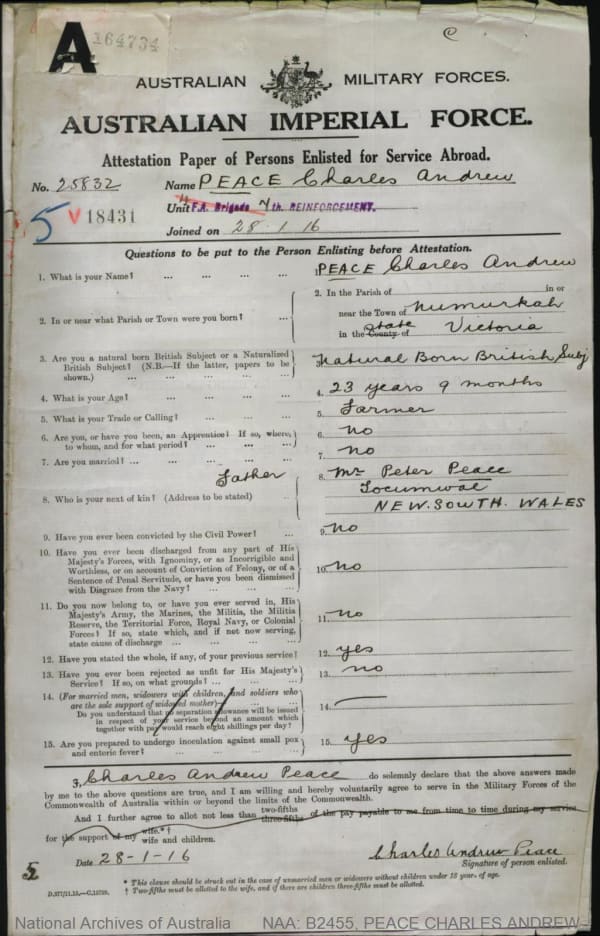 A
164734
AUSTRALIAN MILITARY FORCES.
AUSTRALIAN IMPERIAL FORCE.
Attestation Paper of Persons Enlisted for Service Abroad.
No. 25832 Name PEACE Charles Andrew
5 V 18431 Unit F.A. Brigade 7th. REINFORCEMENT.
Joined on 28.1.16
Questions to be put to the Person Enlisting before Attestation.
1. What is your Name? ... ... ... ... 1. PEACE Charles Andrew
2. In or near what Parish or Town were you born? ... 2. In the Parish of in or
near the Town of Numurkah
in the County of State Victoria
3. Are you a natural born British Subject or a Naturalized 3. Natural Born British Subj
British Subject? (N.B.—If the latter, papers to be
shown.) ... ... ... ... ...
4. What is your Age? ... ... ... ... 4. 23 years 9 months
5. What is your Trade or Calling? ... ... ... 5. Farmer
6. Are you, or have you been, an Apprentice? If so, where, 6. no
to whom, and for what period? ... ... ...
7. Are you married? ... ... ... ... ... 7. no
Father 8. Mr Peter Peace
8. Who is your next of kin? (Address to be stated) .. Tocumwal
NEW. SOUTH. WALES
9. Have you ever been convicted by the Civil Power? ... 9. no
10. Have you ever been discharged from any part of His
Majesty's Forces, with Ignominy, or as Incorrigible and
Worthless, or on account of Conviction of Felony, or of a 10. no
Sentence of Penal Servitude, or have you been dismissed
with Disgrace from the Navy? ... ... ...
11. Do you now belong to, or have you ever served in, His
Majesty's Army, the Marines, the Militia, the Militia
Reserve, the Territorial Force, Royal Navy, or Colonial 11. no
Forces? If so, state which, and if not now serving,
state cause of discharge ... ... ... ...
12. Have you stated the whole, if any, of your previous service? 12. yes
13. Have you ever been rejected as unfit for His Majesty's 13. no
Service? If so, on what grounds? ... ... ...
14. (For married men, widowers with children, and soldiers who
are the sole support of widowed mother)—
Do you understand that no separation allowance will be issued 14. —
in respect of your service beyond an amount which
together with pay would reach eight shillings per day?
15. Are you prepared to undergo inoculation against small pox 15. yes
and enteric fever? ... ... ... ...
I, Charles Andrew Peace do solemnly declare that the above answers made
by me to the above questions are true, and I am willing and hereby voluntarily agree to serve in the Military Forces of the
Commonwealth of Australia within or beyond the limits of the Commonwealth.
And I further agree to allot not less than two-fifths three-fifths of the pay payable to me from time to time during my service
for the support of my wife.*† wife and children.
Date 28-1-16 Charles Andrew Peace
Signature of person enlisted.
* This clause should be struck out in the case of unmarried men or widowers without children under 18 year. of age.
† Two-fifths must be allotted to the wife, and if there are children three-fifths must be allotted.
National Archives of Australia NAA: B2455, PEACE CHARLES ANDREW